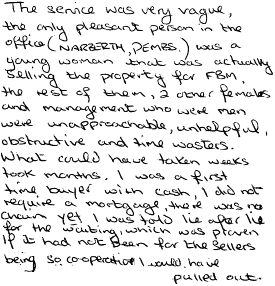 The service was very vague,
the only pleasant person in the
office (NARBERTH, PEMBS.) was a
young woman that was actually
selling the property for FBM,
the rest of them, 2 other females
and management who were men
were unapproachable, unhelpful,
obstructive and time wasters.
What could have taken weeks
took months. I was a first
time buyer with cash, I did not
require a mortgage, there was no
chain yet I was told lie after lie
for the waiting, which was proven
If it had not been for the sellers
being so cooperative I would, have
pulled out.